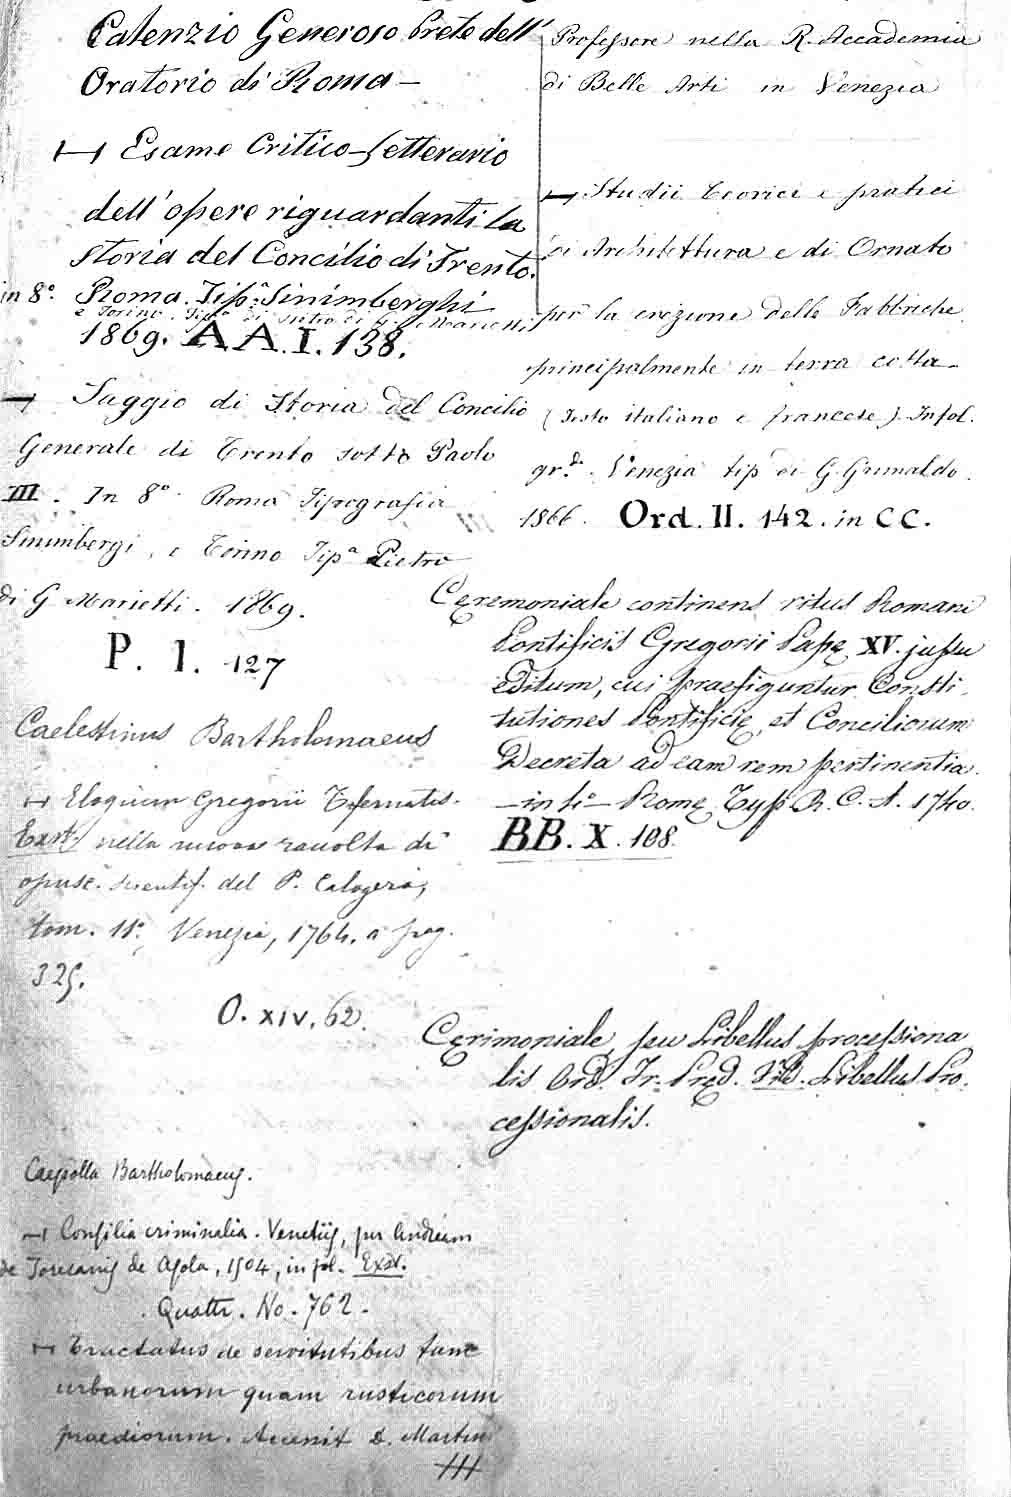 Calenzio Generoso Prete dell'
Oratorio di Roma —
⊢ Esame Critico-Letterario
dell' opere riguardanti la
storia del Concilio di Trento.
in 8°. Roma. Tip.ª Sinimberghi
e Torino. Tip.ª di Pietro di G. Marietti
1869. A A. I. 138.
— Saggio di Storia del Concilio
Generale di Trento sotto Paolo
III. In 8° Roma Tipografia
Sinimbergi, e Torino Tipª Pietro
di G Marietti. 1869.
P. I. 127
Caelestinus Bartholomaeus
⊢ Eloquium Gregorii Tifernatis.
Exst. nella nuova raccolta di
opusc. scientif. del P. Calogerà,
tom. 11°, Venezia, 1764. a pag.
325.
O. XIV. 62.
Caepolla Bartholomaeus.
⊢ Consilia criminalia. Venetiis, per Andream
de Toresanis de Asola, 1504, in fol. Exst.
Quattr. No. 762.
⊢ Tractatus de servitutibus tam
urbanorum quam rusticorum
praediorum. Accenit D. Martin
Professore nella R. Accademia
di Belle Arti in Venezia
— Studii Teorici e pratici
di Architettura e di Ornato
per la erezione delle Fabbriche
principalmente in terra cotta
(Testo italiano e francese). In fol.
gr.d. Venezia tip di G. Grimaldo.
1866. Ord. II. 142. in CC.
Cęremoniale continens ritus Romani
Pontificis Gregorii Papę XV. jussu
editum, cui praefiguntur Consti-
tutiones Pontificię, et Conciliorum
Decreta ad eam rem pertinentia.
— in fº — Romę Typ. R. C. A. 1740.
BB. X. 108.
Cęrimoniale, seu Libellus processiona
lis Ord. Fr. Pręd. Vid. Libellus Pro-
cessionalis.